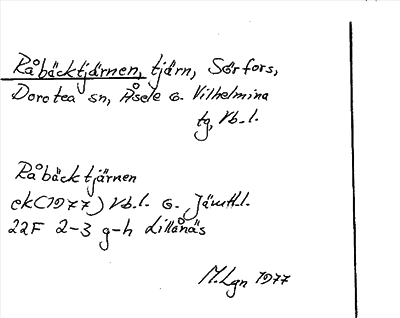 Råbäcktjärnen, tjärn, Sörfors,
Dorotea sn, Åsele o. Vilhelmina
tg, Vb.l.
Råbäcktjärnen
ek(1977) Vb.l. o. Jämtl.l.
22F 2-3 g-h Lillånäs
M.Lgn 1977